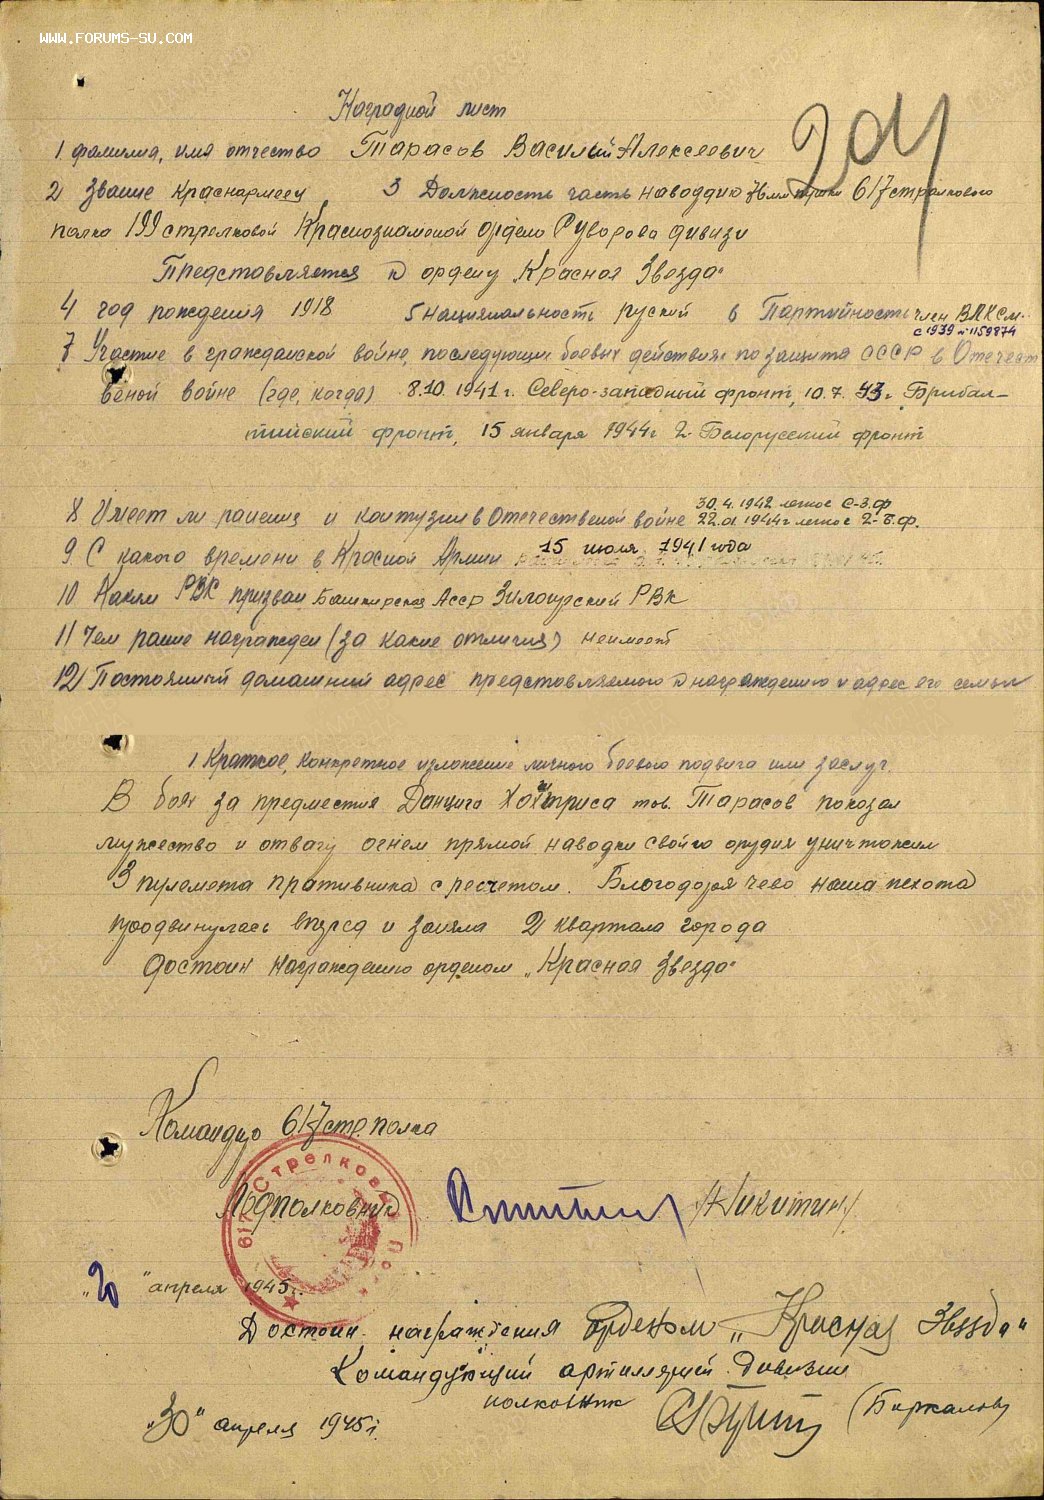 WWW.FORUMS-SU.COM
Наградной лист
1 фамилия, имя отчество Тарасов Василий Алексеевич
2 Звание Краснармеец 3 Должность часть наводдию 76мм пушки 617стрелкового
полка 199стрелковой Краснознаменой ордено Суворова дивизи
Представляется к ордену Красная Звезда"
4 год рождения 1918 5 национальность руский 6 Партийность член ВЛКСМ
с 1939 № 1159874
7 Участие в гражданской войне, последующих боевых действиях по защите СССР в Отечест
веной войне (где, когда) 8.10.1941г. Северо-западный фронт, 10.7.43г. Прибал-
тийский фронт, 15 января 1944г 2-Белорусский фронт
30.4.1942 легкое С-З.ф
8 Имеет ли ранения и контузия в Отечественой войне 22.01.1944г легкое 2-Б.ф.
9 С какого времени в Красной Армии 15 июля 1941 года
10 Каким РВК призван Башкирская Асср Зилоирский РВК
11 Чем ранее награжден (за какие отличия) неимеет
12 Постоянный домашний адрес представляемого к награждению и адрес его семьи
1 Краткое, конкретное изложение личного боевого подвига или заслуг.
В боях за предместия Данцига тов. Тарасов показал
мужество и отвагу огнем прямой наводки свойго орудия уничтожил
3 пулемета пративника с ресчетом. Благодоря чево наша пехота
продвинулась вперед и заняла 2 квартала города
Достоин награждению орденом „Красная Звезда"
Командир 617стр. полка
617 Стрелковый Полк
Подполковник /Никитин/
„20" апреля 1945г.
Достоин награждения Орденом „Красная Звезда"
Командующий артиллерией Дивизии
полковник (Биркалов)
„30" апреля 1945г.